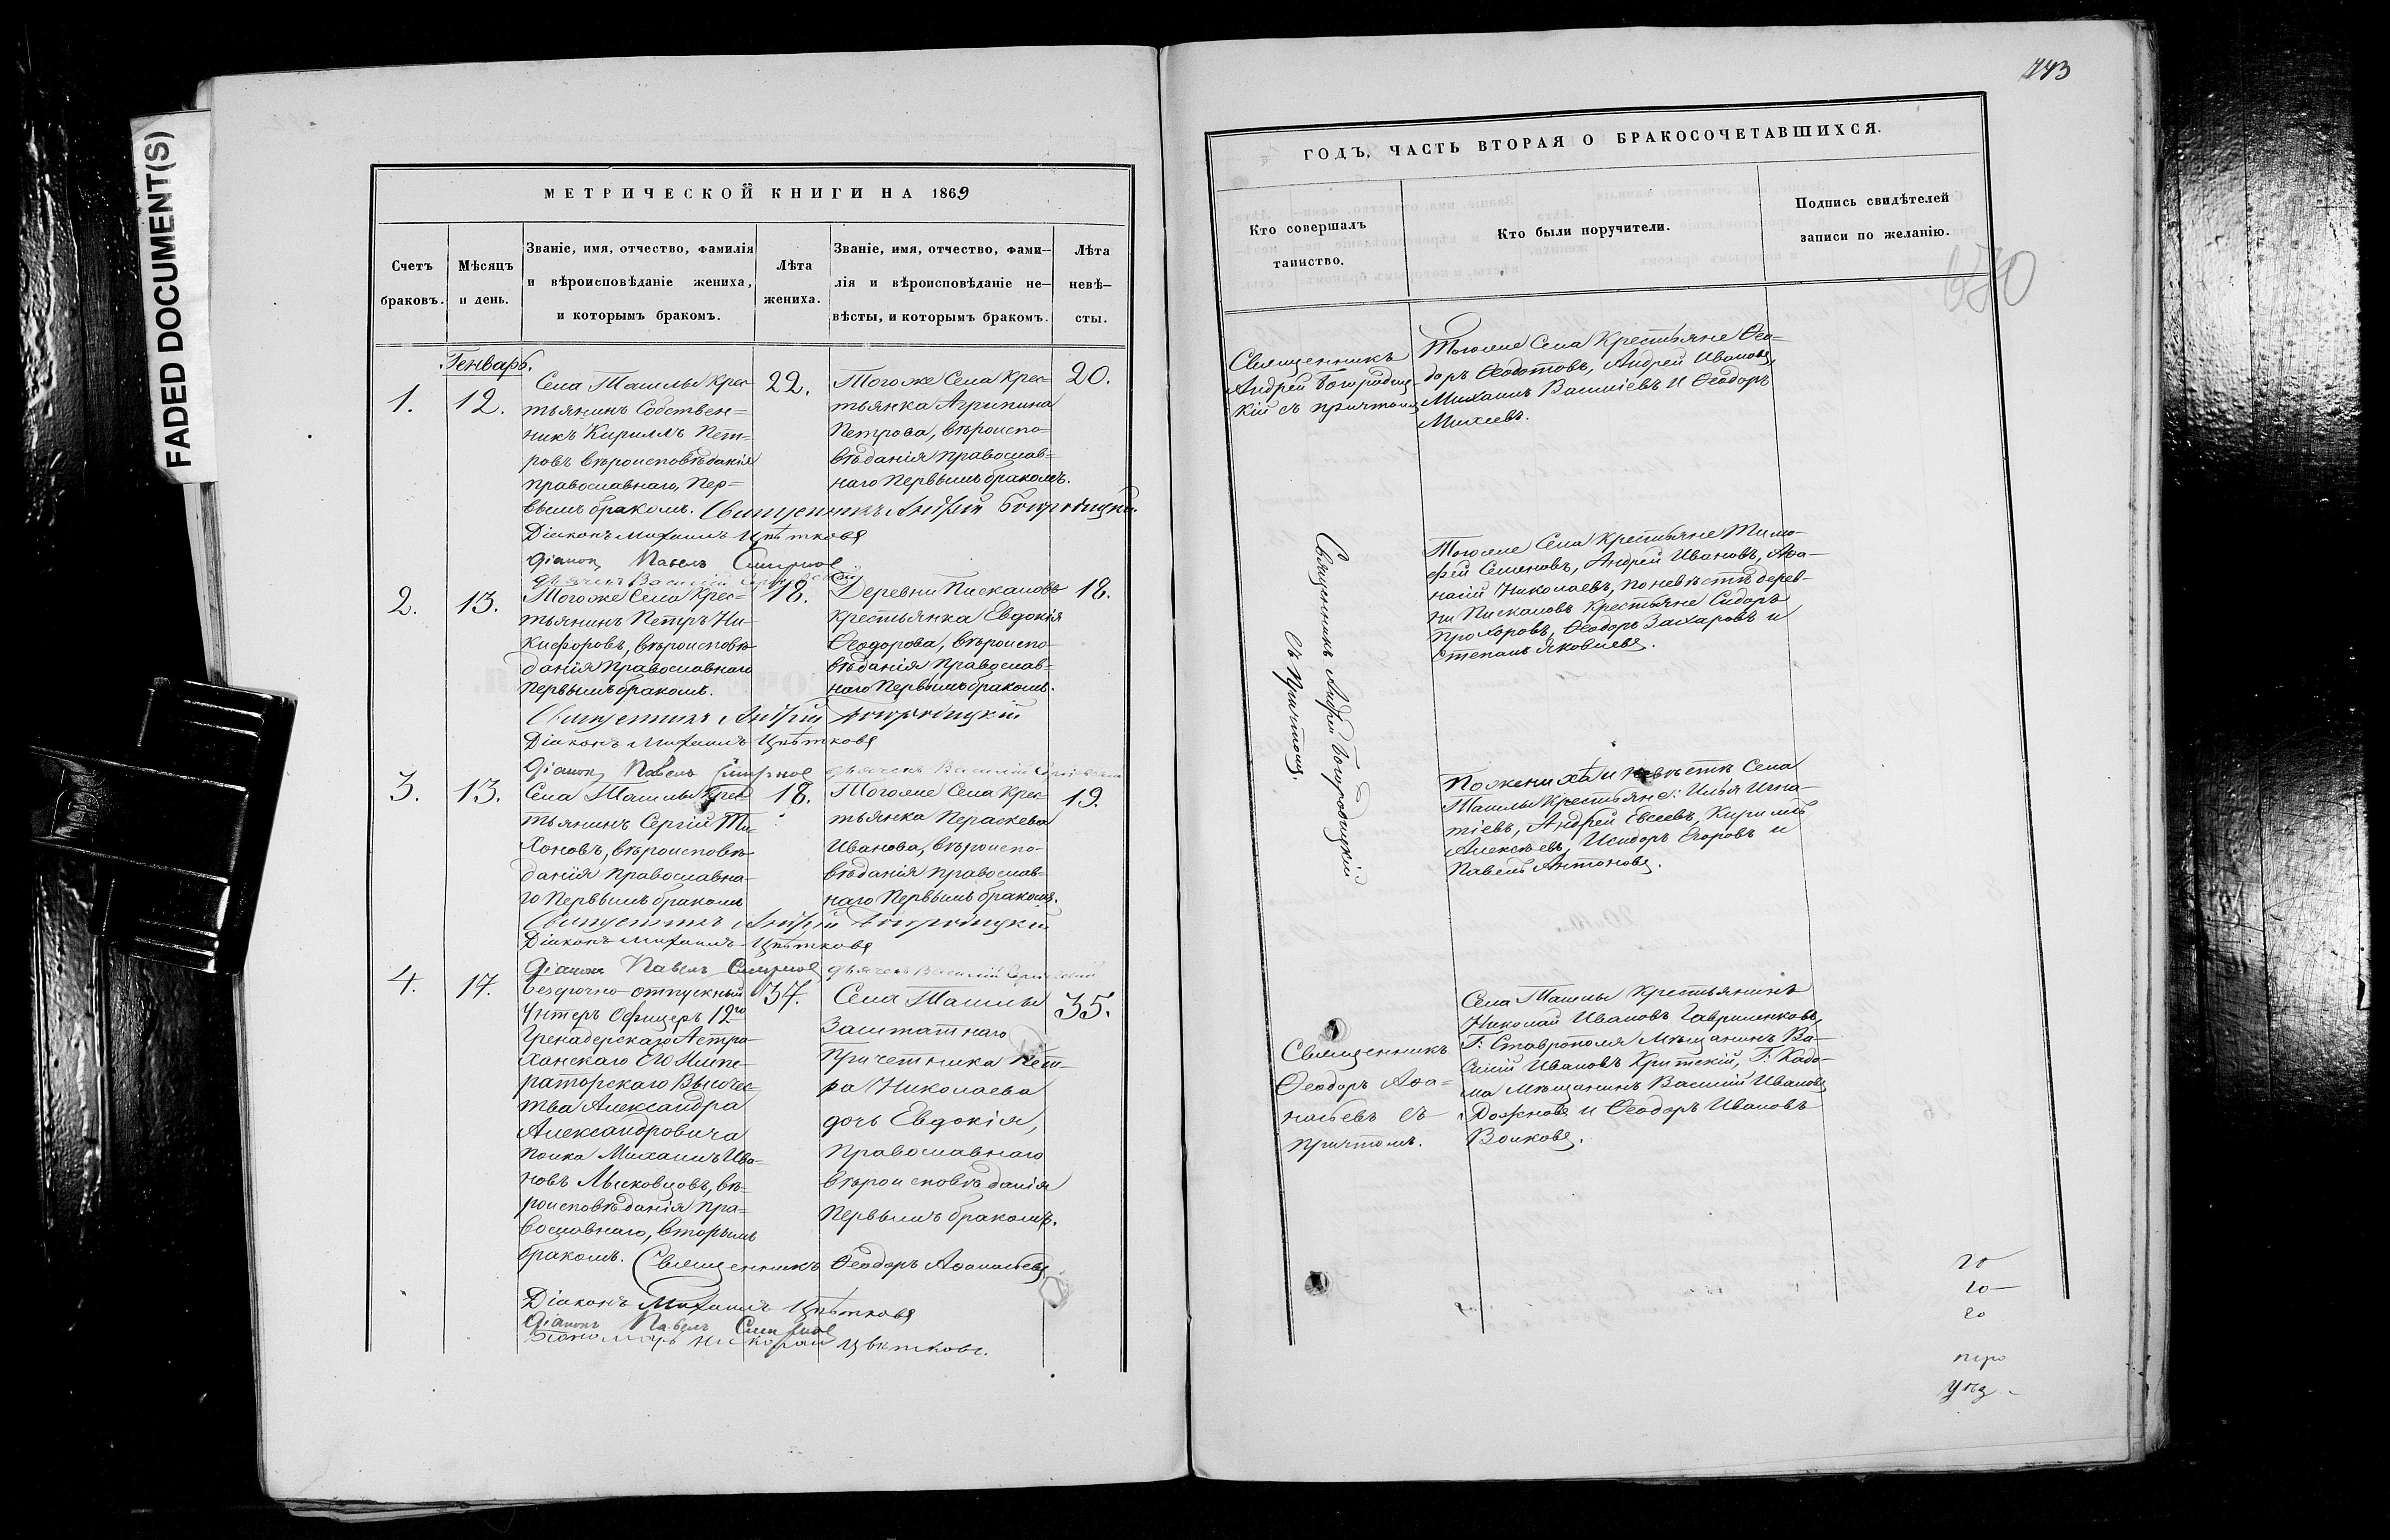 FADED DOCUMENT(S)
МЕТРИЧЕСКОЙ КНИГИ НА 1869
Счетъ
браковъ.
Мѣсяцъ
и день.
Званіе, имя, отчество, фамилія
и вѣроисповѣданіе жениха,
и которымъ бракомъ.
Лѣта
жениха.
Званіе, имя, отчество, фами-
лія и вѣроисповѣданіе не-
вѣсты, и которымъ бракомъ.
Лѣта
невѣ-
сты.
Генварь.
1.
12.
Села Ташлы Крес-
тьянинъ Собствен=
никъ Кириллъ Пет-
ровъ вѣроисповѣданія
православнаго, Пер=
вымъ бракомъ.
22.
Того же Села Крес=
тьянка Агрипина
Петрова, вѣроиспо-
вѣданія православ=
наго Первымъ бракомъ.
20.
Священникъ Андрей Богородицкій
Діаконъ Михаилъ Цвѣтковъ
Діаконъ Павелъ Смирнов
дьячекъ Василій
2.
13.
Того же Села Крес=
тьянинъ Петръ Ни-
кифоровъ, вѣроисповѣ-
данія Православнаго
Первымъ бракомъ.
18.
Деревни Пискаловъ
Крестьянка Евдокія
Ѳеодорова, вѣроиспо-
вѣданія Православ=
наго Первымъ бракомъ.
18.
Священникъ Андрей Богородицкій
Діаконъ Михаилъ Цвѣтковъ
Діаконъ Павелъ Смирнов дьячекъ Василій
3.
13.
Села Ташлы Крес-
тьянинъ Сергій Ти-
хоновъ, вѣроисповѣ-
данія Православна-
го Первымъ бракомъ
18.
Тогоже Села Крес-
тьянка Пераскева
Иванова, вѣроиспо-
вѣданія православ-
наго Первымъ бракомъ.
19.
Священникъ Андрей Богородицкій
Діаконъ Михаилъ Цвѣтковъ
Діаконъ Павелъ Смирнов дьячекъ Василій
4.
17.
безсрочно-отпускный
Унтеръ Офицеръ 12го
Гренадерскаго Астра-
ханскаго Его Импе-
раторскаго Высочес-
тва Александра
Александровича
полка Михаилъ Ива-
новъ Мысковцовъ, вѣ-
роисповѣданія пра-
вославнаго, вторымъ
бракомъ.
37.
Села Ташлы
Заштатнаго
Причетника Пет-
ра Николаева
дочь Евдокія,
Православнаго
вѣроисповѣданія
Первымъ бракомъ.
35.
Священникъ Ѳеодоръ Аѳанасьевъ
Діаконъ Михаилъ Цвѣтковъ
Діаконъ Павелъ Смирнов
Пономарь Николай Цвѣтковъ.
743
ГОДЪ, ЧАСТЬ ВТОРАЯ О БРАКОСОЧЕТАВШИХСЯ.
Кто совершалъ
таинство.
Кто были поручители.
Подпись свидѣтелей
записи по желанію.
Священникъ
Андрей Богородиц-
кій съ причтомъ
Тогоже Села Крестьяне Ѳео-
доръ Ѳеодотовъ, Андрей Ивановъ,
Михаилъ Васильевъ и Ѳеодоръ
Михеевъ.
Священникъ Андрей Богородицкій
съ Причтомъ.
Тогоже Села Крестьяне Тимо-
фей Семеновъ, Андрей Ивановъ, Аѳа-
насій Николаевъ, по невѣстѣ дерев-
ни Пискаловъ Крестьяне Сидоръ
Прохоровъ, Ѳеодоръ Захаровъ и
Степанъ Яковлевъ.
По жениху и невѣстѣ Села
Ташлы Крестьяне: Илья Игна-
тіевъ, Андрей Евсеевъ, Кириллъ
Алексѣевъ, Исидоръ Егоровъ и
Павелъ Антоновъ.
Священникъ
Ѳеодоръ Аѳа-
насьевъ съ
причтомъ.
Села Ташлы Крестьянинъ
Николай Ивановъ Гавриленковъ,
Г: Ставрополя Мѣщанинъ Ва-
силій Ивановъ Критскій, Г: Кадо-
ма Мѣщанинъ Василій Ивановъ
Должновъ и Ѳеодоръ Ивановъ
Волковъ.
20
20
20